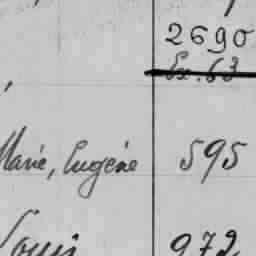 2690
Ex. 63
Marie, Eugène 595
Louis 972